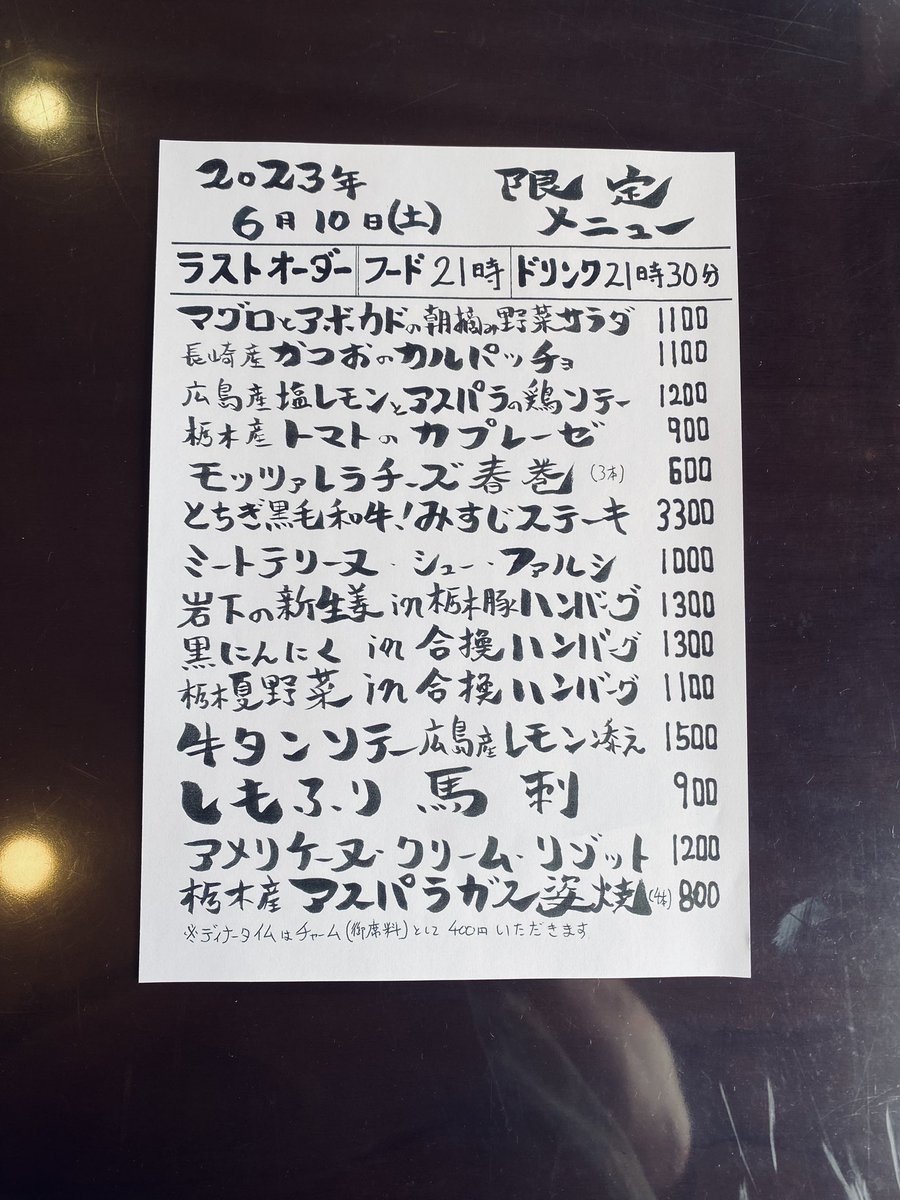 2023年 限定
6月10日(土) メニュー
ラストオーダー フード21時 ドリンク21時30分
マグロとアボカドの朝摘み野菜サラダ 1100
長崎産かつおのカルパッチョ 1100
広島産塩レモンとアスパラの鶏ソテー 1200
栃木産トマトのカプレーゼ 900
モッツァレラチーズ春巻(3本) 600
とちぎ黒毛和牛!みすじステーキ 3300
ミートテリーヌ・シュー・ファルシ 1000
岩下の新生姜in栃木豚ハンバーグ 1300
黒にんにくin合挽ハンバーグ 1300
栃木夏野菜in合挽ハンバーグ 1100
牛タンソテー広島産レモン添え 1500
しもふり馬刺 900
アメリケーヌ・クリーム・リゾット 1200
栃木産アスパラガス姿焼(4本) 800
※ディナータイムはチャーム(御席料)として400円いただきます